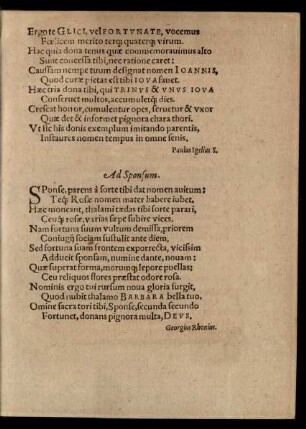 Ergo te GLICI, vel FORTUNATE, vocemus
Fœlicem merito terq; quaterq; virum.
Hac quia dona tenus quæ commemorauimus alto
Sunt concessa tibi, nec ratione caret:
Caussam nempe tuum designat nomen IOANNIS,
Quod curæ pietas est tibi IOVA fauet.
Hæc tria dona tibi, qui TRINVS & VNVS IOVA
Conseruet multos, accumuletq; dies.
Crescat honor, comulentur opes, seruetur & vxor
Quæ det & informet pignora chara thori.
Vt sic his donis exemplum imitando parentis,
Instaures nomen tempus in omne senis,
Paulus Igelius S.
Ad Sponsum.
SPonse, parens à sorte tibi dat nomen auitum:
Teq; Rosæ nomen mater habere iubet.
Hæc moneant, thalami tædas tibi sorte parari,
Ceuq; rosæ, varias sæpe subire vices.
Nam fortuna suum vultum demissa, priorem
Coniugij sociam sustulit ante diem,
Sed fortuna suam frontem exporrecta, vicissim
Adducit sponsam, numine dante, nouam:
Quæ superat forma, morumq; lepore puellas;
Ceu reliquos flores præstat odore rosa.
Nominis ergo tui rursum noua gloria surgit,
Quod nubit thalamo BARBARA bella tuo,
Omine sacra tori tibi, Sponse, secunda secundo
Fortunet, donans pignora multa, DEVS.
Georgius Rhenius.